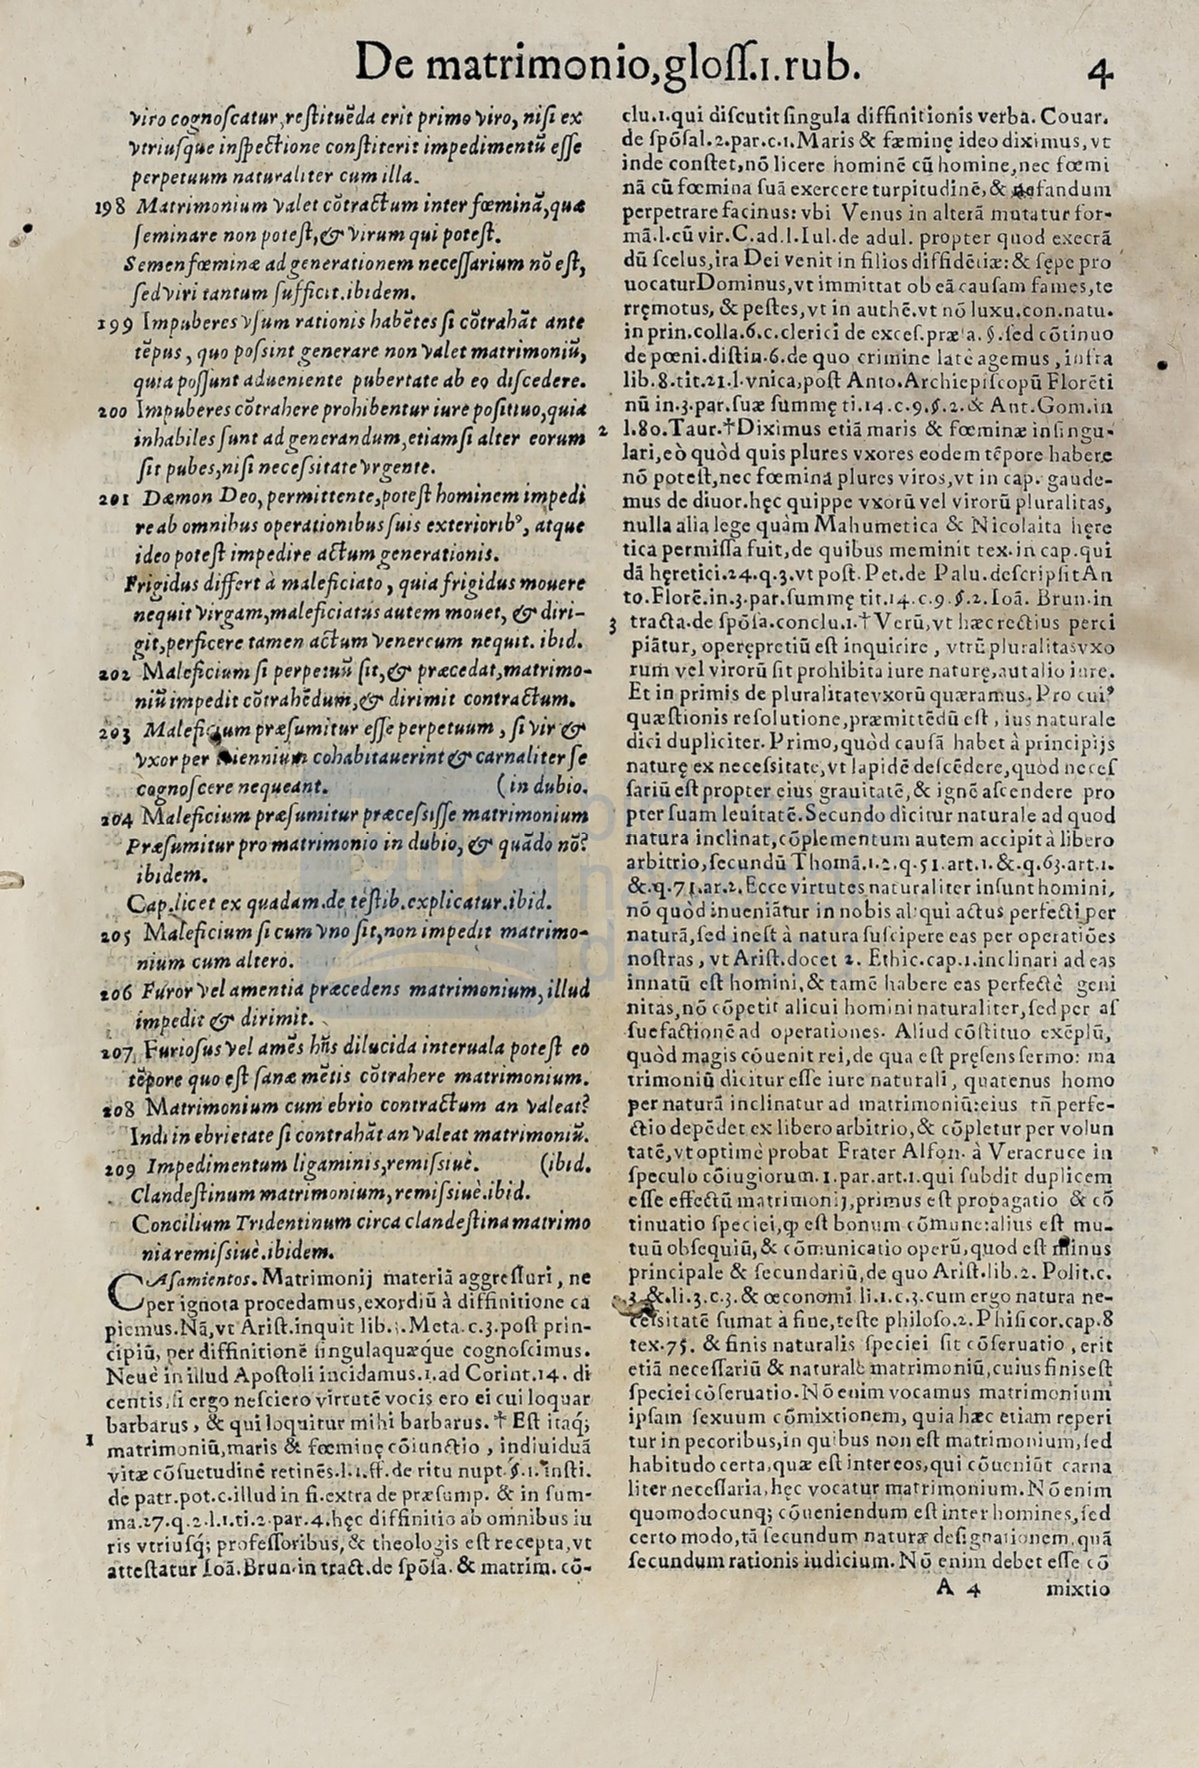 De matrimonio,gloſſ.1.rub. 4
viro cognoſcatur,reſtituẽda erit primo viro, niſi ex
vtriuſque inſpectione conſtiterit impedimentũ eſſe
perpetuum naturaliter cum illa.
198 Matrimonium valet cõtractum inter fœminã,quæ
ſeminare non poteſt,& virum qui poteſt.
Semen fœminæ ad generationem neceſſarium nõ eſt,
ſed viri tantum ſufficit.ibidem.
199 Impuberes vſum rationis habẽtes ſi cõtrahãt ante
tẽpus, quo poſsint generare non valet matrimoniũ,
quia poſſunt adueniente pubertate ab eo diſcedere.
200 Impuberes cõtrahere prohibentur iure poſitiuo,quia
inhabiles ſunt ad generandum,etiam ſi alter eorum
ſit pubes,niſi neceſsitate vrgente.
201 Dæmon Deo, permittente,poteſt hominem impedi
re ab omnibus operationibus ſuis exteriorib⁹, atque
ideo poteſt impedire actum generationis.
Frigidus differt à maleficiato, quia frigidus mouere
nequit virgam,maleficiatus autem mouet, & diri-
git,perficere tamen actum venereum nequit. ibid.
202 Maleficium ſi perpetuũ ſit,& præcedat,matrimo-
niũ impedit cõtrahẽdum,& dirimit contractum.
203 Maleficium præſumitur eſſe perpetuum, ſi vir &
vxor per triennium cohabitauerint & carnaliter ſe
cognoſcere nequeant. (in dubio.
204 Maleficium præſumitur præceſsiſſe matrimonium
Præſumitur pro matrimonio in dubio, & quãdo nõ?
ibidem.
Cap.licet ex quadam.de teſtib.explicatur.ibid.
205 Maleficium ſi cum vno ſit,non impedit matrimo-
nium cum altero.
206 Furor vel amentia præcedens matrimonium, illud
impedit & dirimit.
207 Furioſus vel amẽs hñs dilucida interuala poteſt eo
tẽpore quo eſt ſanæ mẽtis cõtrahere matrimonium.
208 Matrimonium cum ebrio contractum an valeat?
Indi in ebrietate ſi contrahãt an valeat matrimoniũ.
209 Impedimentum ligaminis,remiſsiuè. (ibid.
Clandeſtinum matrimonium,remiſsiuè.ibid.
Concilium Tridentinum circa clandeſtina matrimo
nia remiſsiuè.ibidem.
CAſamientos. Matrimonij materiã aggreſſuri, ne
per ignota procedamus,exordiũ à diffinitione ca
piemus.Nã,vt Ariſt.inquit lib. .Meta.c.3.poſt prin-
cipiũ, per diffinitionẽ ſingulaquæque cognoſcimus.
Neue in illud Apoſtoli incidamus.1.ad Corint.14. di
centis,ſi ergo neſciero virtutẽ vocis ero ei cui loquar
barbarus, & qui loquitur mihi barbarus. † Eſt itaq;
1 matrimoniũ,maris & fœminę cõiunctio, indiuiduã
vitæ cõſuetudinẽ retinẽs.l.1.ff.de ritu nupt.§.1.inſti.
de patr.pot.c.illud in fi.extra de præſump. & in ſum-
ma.27.q.2.l.1.ti.2.par.4.hęc diffinitio ab omnibus iu
ris vtriuſq; profeſſoribus, & theologis eſt recepta,vt
atteſtatur Ioã.Brun.in tract.de ſpõſa. & matrim. cõ-
clu.1.qui diſcutit ſingula diffinitionis verba. Couar.
de ſpõſal.2.par.c.1.Maris & fæminę ideo diximus, vt
inde conſtet,nõ licere hominẽ cũ homine,nec fœmi
nã cũ fœmina ſuã exercere turpitudinẽ,& nefandum
perpetrare facinus: vbi Venus in alterã mutatur for-
mã.l.cũ vir.C.ad.l.Iul.de adul. propter quod execrã
dũ ſcelus,ira Dei venit in filios diffidẽtiæ: & ſępe pro
uocatur Dominus,vt immittat ob eã cauſam fames,te
rręmotus, & peſtes, vt in authẽ.vt nõ luxu.con.natu.
in prin.colla.6.c.clerici de exceſ.præla.§.ſed cõtinuo
de pœni.diſtin.6.de quo crimine latè agemus, infra
lib.8.tit.21.l.vnica,poſt Anto.Archiepiſcopũ Florẽti
nũ in.3.par.ſuæ ſummę ti.14.c.9.§.2.& Ant.Gom.in
2 l.80.Taur.†Diximus etiã maris & fœminæ in ſingu-
lari,eò quòd quis plures vxores eodem tẽpore habere
nõ poteſt,nec fœmina plures viros,vt in cap. gaude-
mus de diuor.hęc quippe vxorũ vel virorũ pluralitas,
nulla alia lege quàm Mahumetica & Nicolaita hęre
tica permiſſa fuit,de quibus meminit tex.in cap.qui
dã hęretici.24.q.3.vt poſt.Pet.de Palu.deſcripſit An
to.Florẽ.in.3.par.ſummę tit.14.c.9.§.2.Ioã. Brun.in
3 tracta.de ſpõſa.conclu.1.† Verũ,vt hæc rectius perci
piãtur, operępretiũ eſt inquirire, vtrũ pluralitas vxo
rum vel virorũ ſit prohibita iure naturę,aut alio iure.
Et in primis de pluralitate vxorũ quæramus. Pro cui⁹
quæſtionis reſolutione,præmittẽdũ eſt, ius naturale
dici dupliciter. Primo,quòd cauſã habet à principijs
naturę ex neceſsitate,vt lapidẽ deſcẽdere,quòd neceſ
ſariũ eſt propter eius grauitatẽ,& ignẽ aſcendere pro
pter ſuam leuitatẽ.Secundo dicitur naturale ad quod
natura inclinat,cõplementum autem accipit à libero
arbitrio,ſecundũ Thomã.1.2.q.51.art.1.&.q.63.art.1.
&.q.71.ar.2.Ecce virtutes naturaliter inſunt homini,
nõ quòd inueniãtur in nobis aliqui actus perfecti per
naturã,ſed ineſt à natura ſuſcipere eas per operatiões
noſtras, vt Ariſt.docet 2. Ethic.cap.1.inclinari ad eas
innatũ eſt homini,& tamẽ habere eas perfectè geni
nitas,nõ cõpetit alicui homini naturaliter,ſed per aſ
ſuefactionẽ ad operationes. Aliud cõſtituo exẽplũ,
quòd magis cõuenit rei,de qua eſt pręſens ſermo: ma
trimoniũ dicitur eſſe iure naturali, quatenus homo
per naturã inclinatur ad matrimoniũ:eius tñ perfe-
ctio depẽdet ex libero arbitrio,& cõpletur per volun
tatẽ,vt optimè probat Frater Alfon. à Veracruce in
ſpeculo cõiugiorum.1.par.art.1.qui ſubdit duplicem
eſſe effectũ matrimonij,primus eſt propagatio & cõ
tinuatio ſpeciei,ꝙ eſt bonum cõmune:alius eſt mu-
tuũ obſequiũ,& cõmunicatio operũ,quod eſt minus
principale & ſecundariũ,de quo Ariſt.lib.2. Polit.c.
3.&.li.3.c.3.& œconomi.li.1.c.3.cum ergo natura ne-
ceſsitatẽ ſumat à fine,teſte philoſo.2.Phiſicor.cap.8
tex.75. & finis naturalis ſpeciei ſit cõſeruatio, erit
etiã neceſſariũ & naturale matrimoniũ,cuius finis eſt
ſpeciei cõſeruatio. Nõ enim vocamus matrimonium
ipſam ſexuum cõmixtionem, quia hæc etiam reperi
tur in pecoribus,in quibus non eſt matrimonium,ſed
habitudo certa,quæ eſt inter eos,qui cõueniũt carna
liter neceſſaria,hęc vocatur matrimonium. Nõ enim
quomodocunq; cõueniendum eſt inter homines,ſed
certo modo,tã ſecundum naturæ deſignationem,quã
ſecundum rationis iudicium. Nõ enim debet eſſe cõ
A 4 mixtio